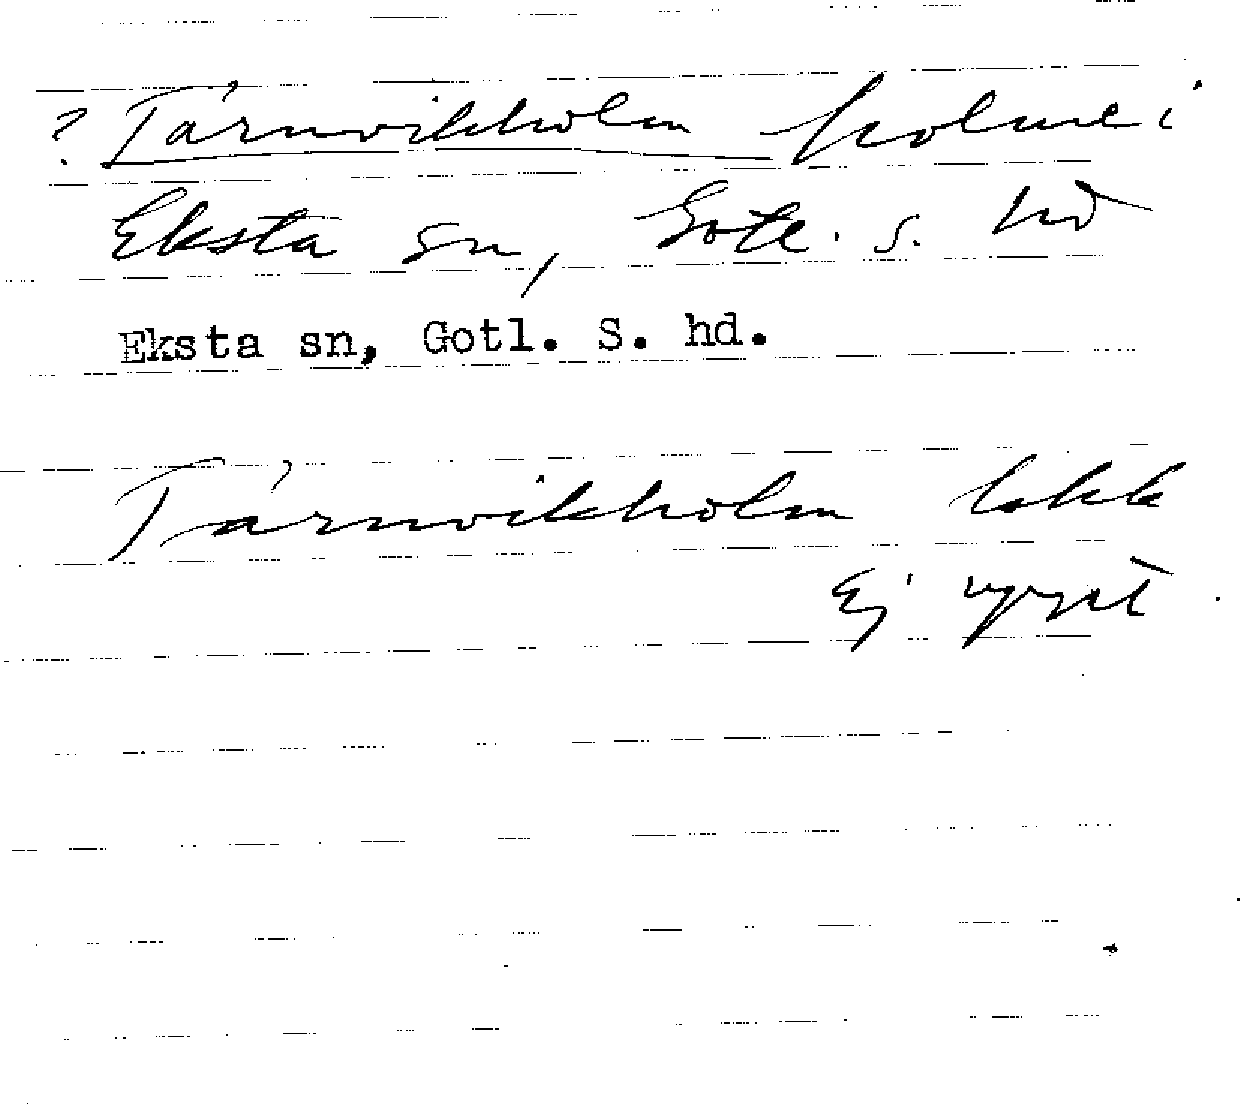 ? Tärnvikholm holme i
Eksta sn, Gotl. S. hd
Eksta sn, Gotl. S. hd.
Tärnvikholm
Ej